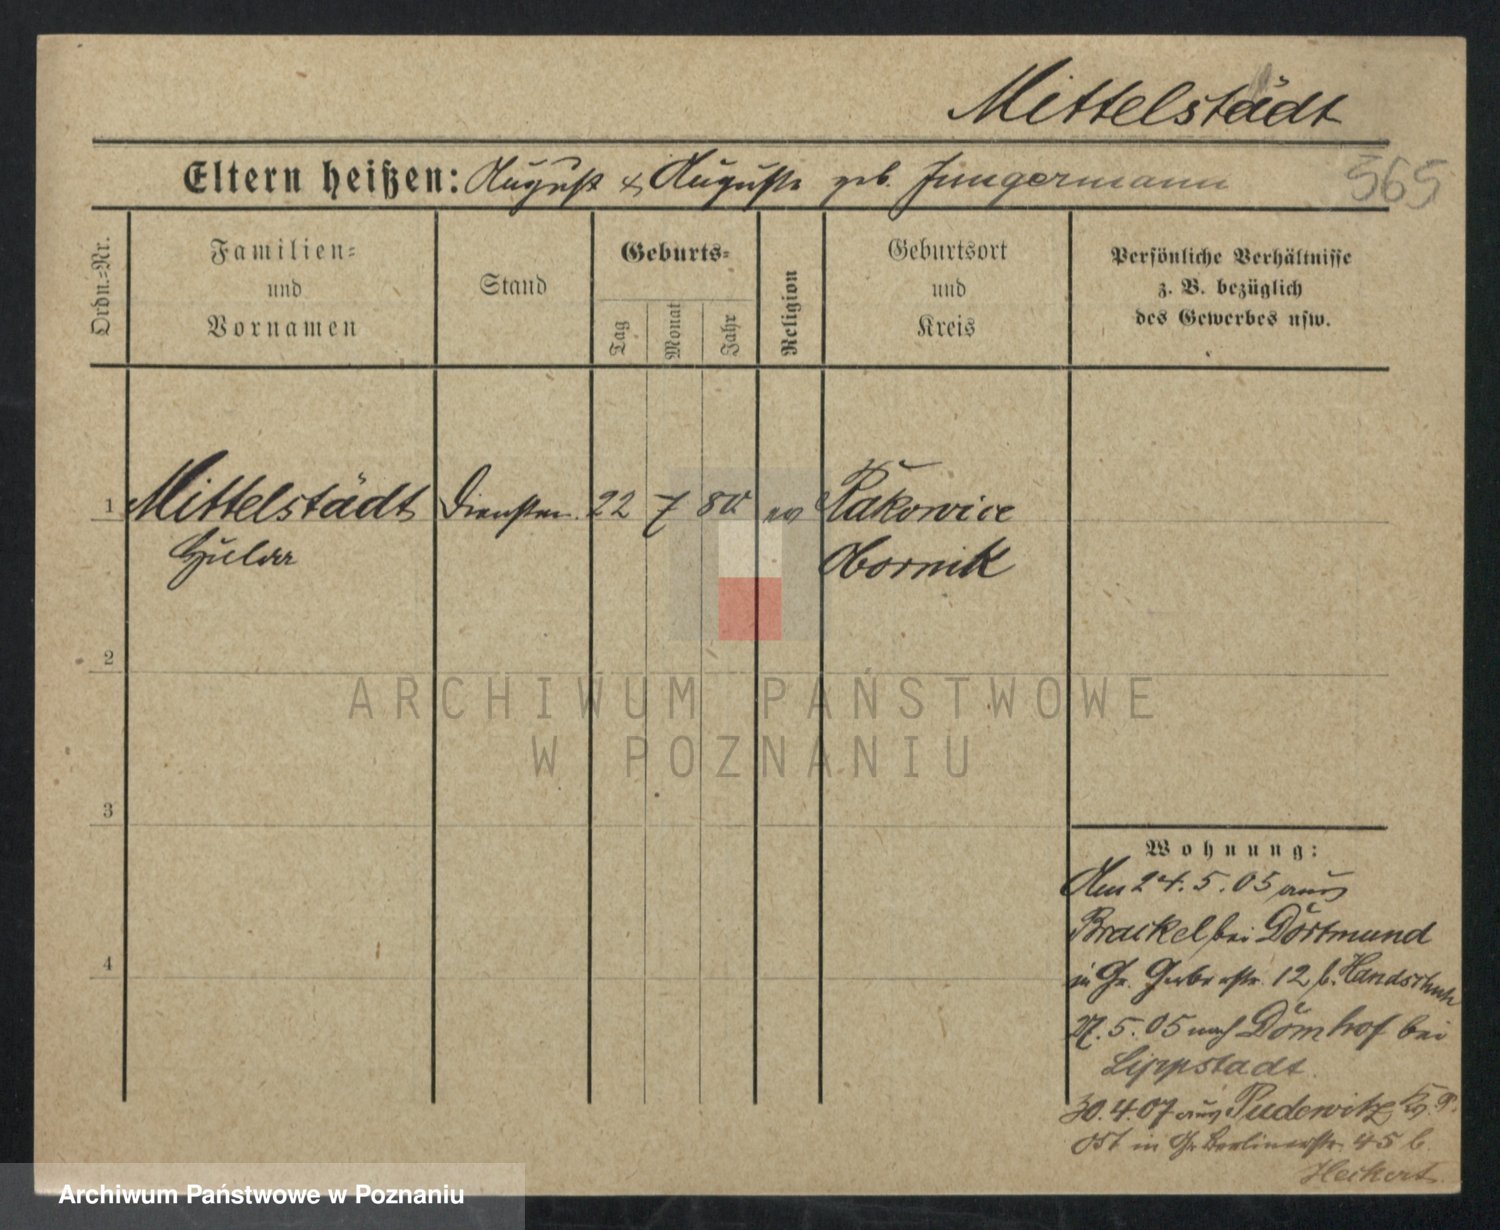 Mittelstädt
Eltern heißen: August & Auguste geb. Jungermann
565
Ordn.=Nr.
Familien=
und
Vornamen
Stand
Geburts=
Tag
Monat
Jahr
Religion
Geburtsort
und
Kreis
Persönliche Verhältnisse
z. B. bezüglich
des Gewerbes usw.
1 Mittelstädt 22 7 80 ev
Hulda Obornik
2
3
4
ARCHIWUM PAŃSTWOWE
W POZNANIU
Wohnung:
Am 24.5.05 aus
Brackel bei Dortmund
in Gr. Gerberstr. 12 b. Handschuh
27.5.05 nach bei
Lippstadt.
30.4.07 aus Pudewitz Kr. P.
Ost in Gr Berlinerstr. 45 b
Heikert
Archiwum Państwowe w Poznaniu